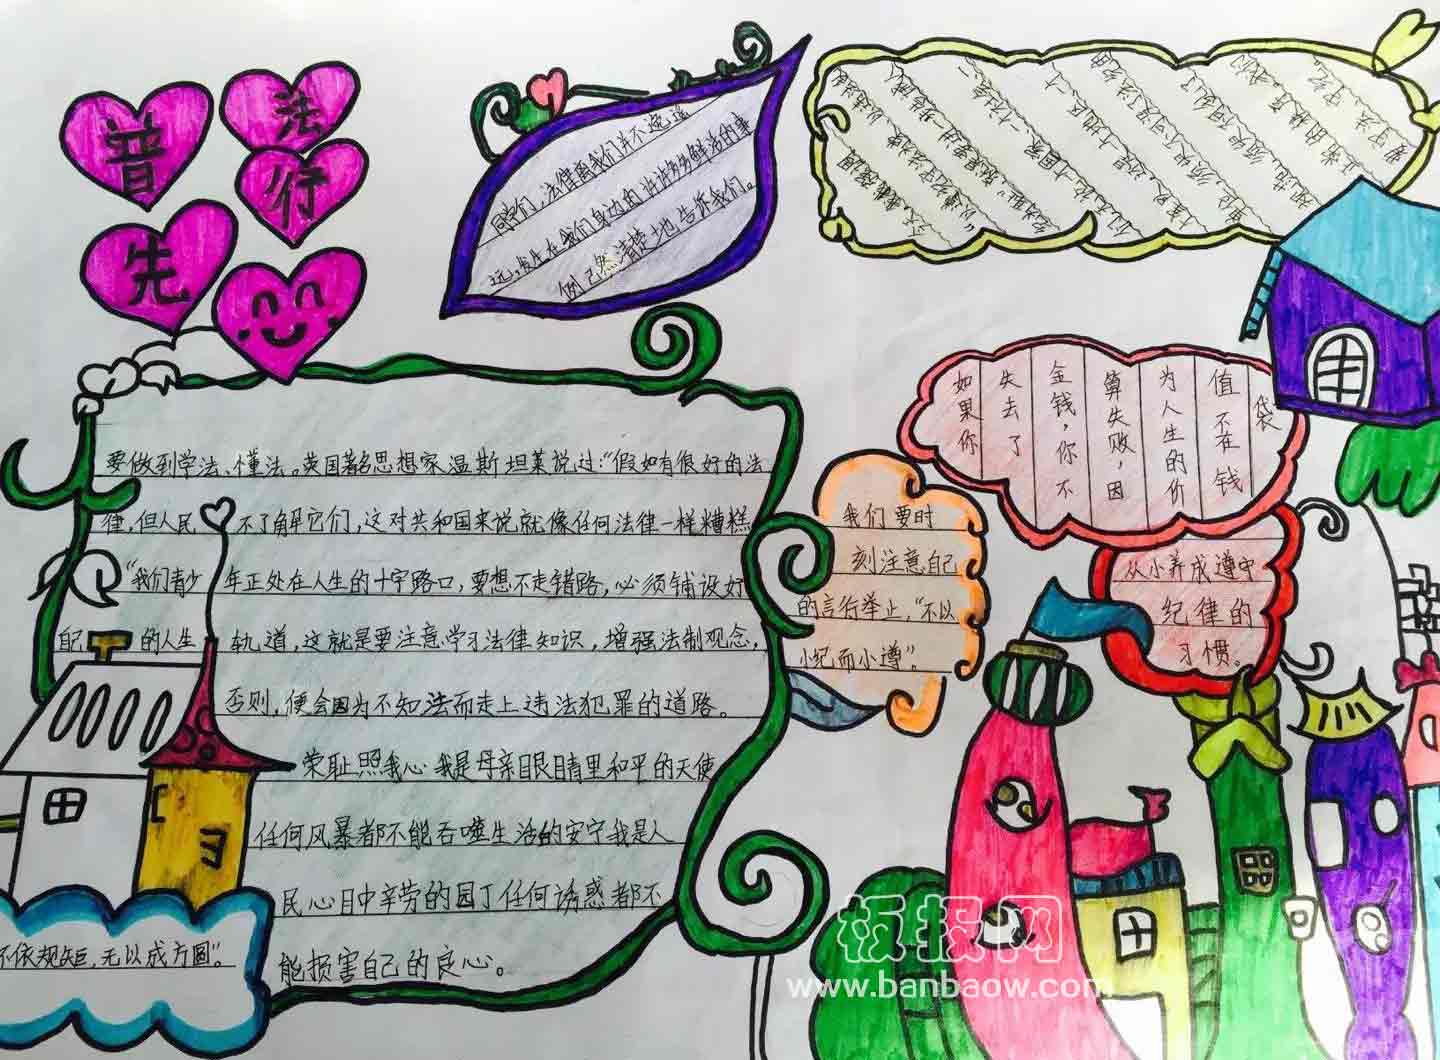 普法
行
先
同学们，法律离我们并不遥遥
远，发生在我们身边的许许多多鲜活的事
例已然清楚地告诉我们。
如果你
失去了
金钱，你不
算失败，因
为人生的价
值不在钱
袋
要做到学法、懂法。英国著名思想家温斯坦莱说过：“假如有很好的法
律，但人民不了解它们，这对共和国来说就像任何法律一样糟糕
“我们青少年正处在人生的十字路口，要想不走错路，必须铺设好
自己的人生轨道，这就是要注意学习法律知识，增强法制观念，
否则，便会因为不知法而走上违法犯罪的道路。
荣耻照我心我是母亲眼睛里和平的天使
任何风暴都不能吞噬生活的安宁我是人
民心目中辛劳的园丁任何诱惑都不
能损害自己的良心。
我们要时
刻注意自己
的言行举止，“不以
小纪而小遵”。
从小养成遵守
纪律的
习惯。
不依规矩，无以成方圆”。
板报网
www.banbaow.com